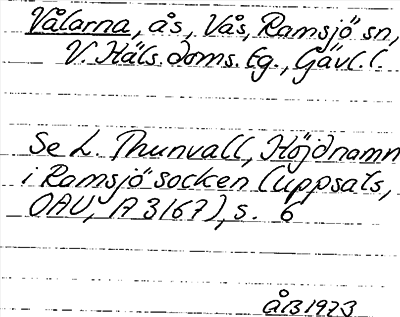 Vålarna, ås, Vås, Ramsjö sn,
V. Häls. doms. tg., Gävl. l.
Se L. Thunvall, Höjdnamn
i Ramsjö socken (Uppsats,
OAU, A 3167), s. 6
ÅB 1973